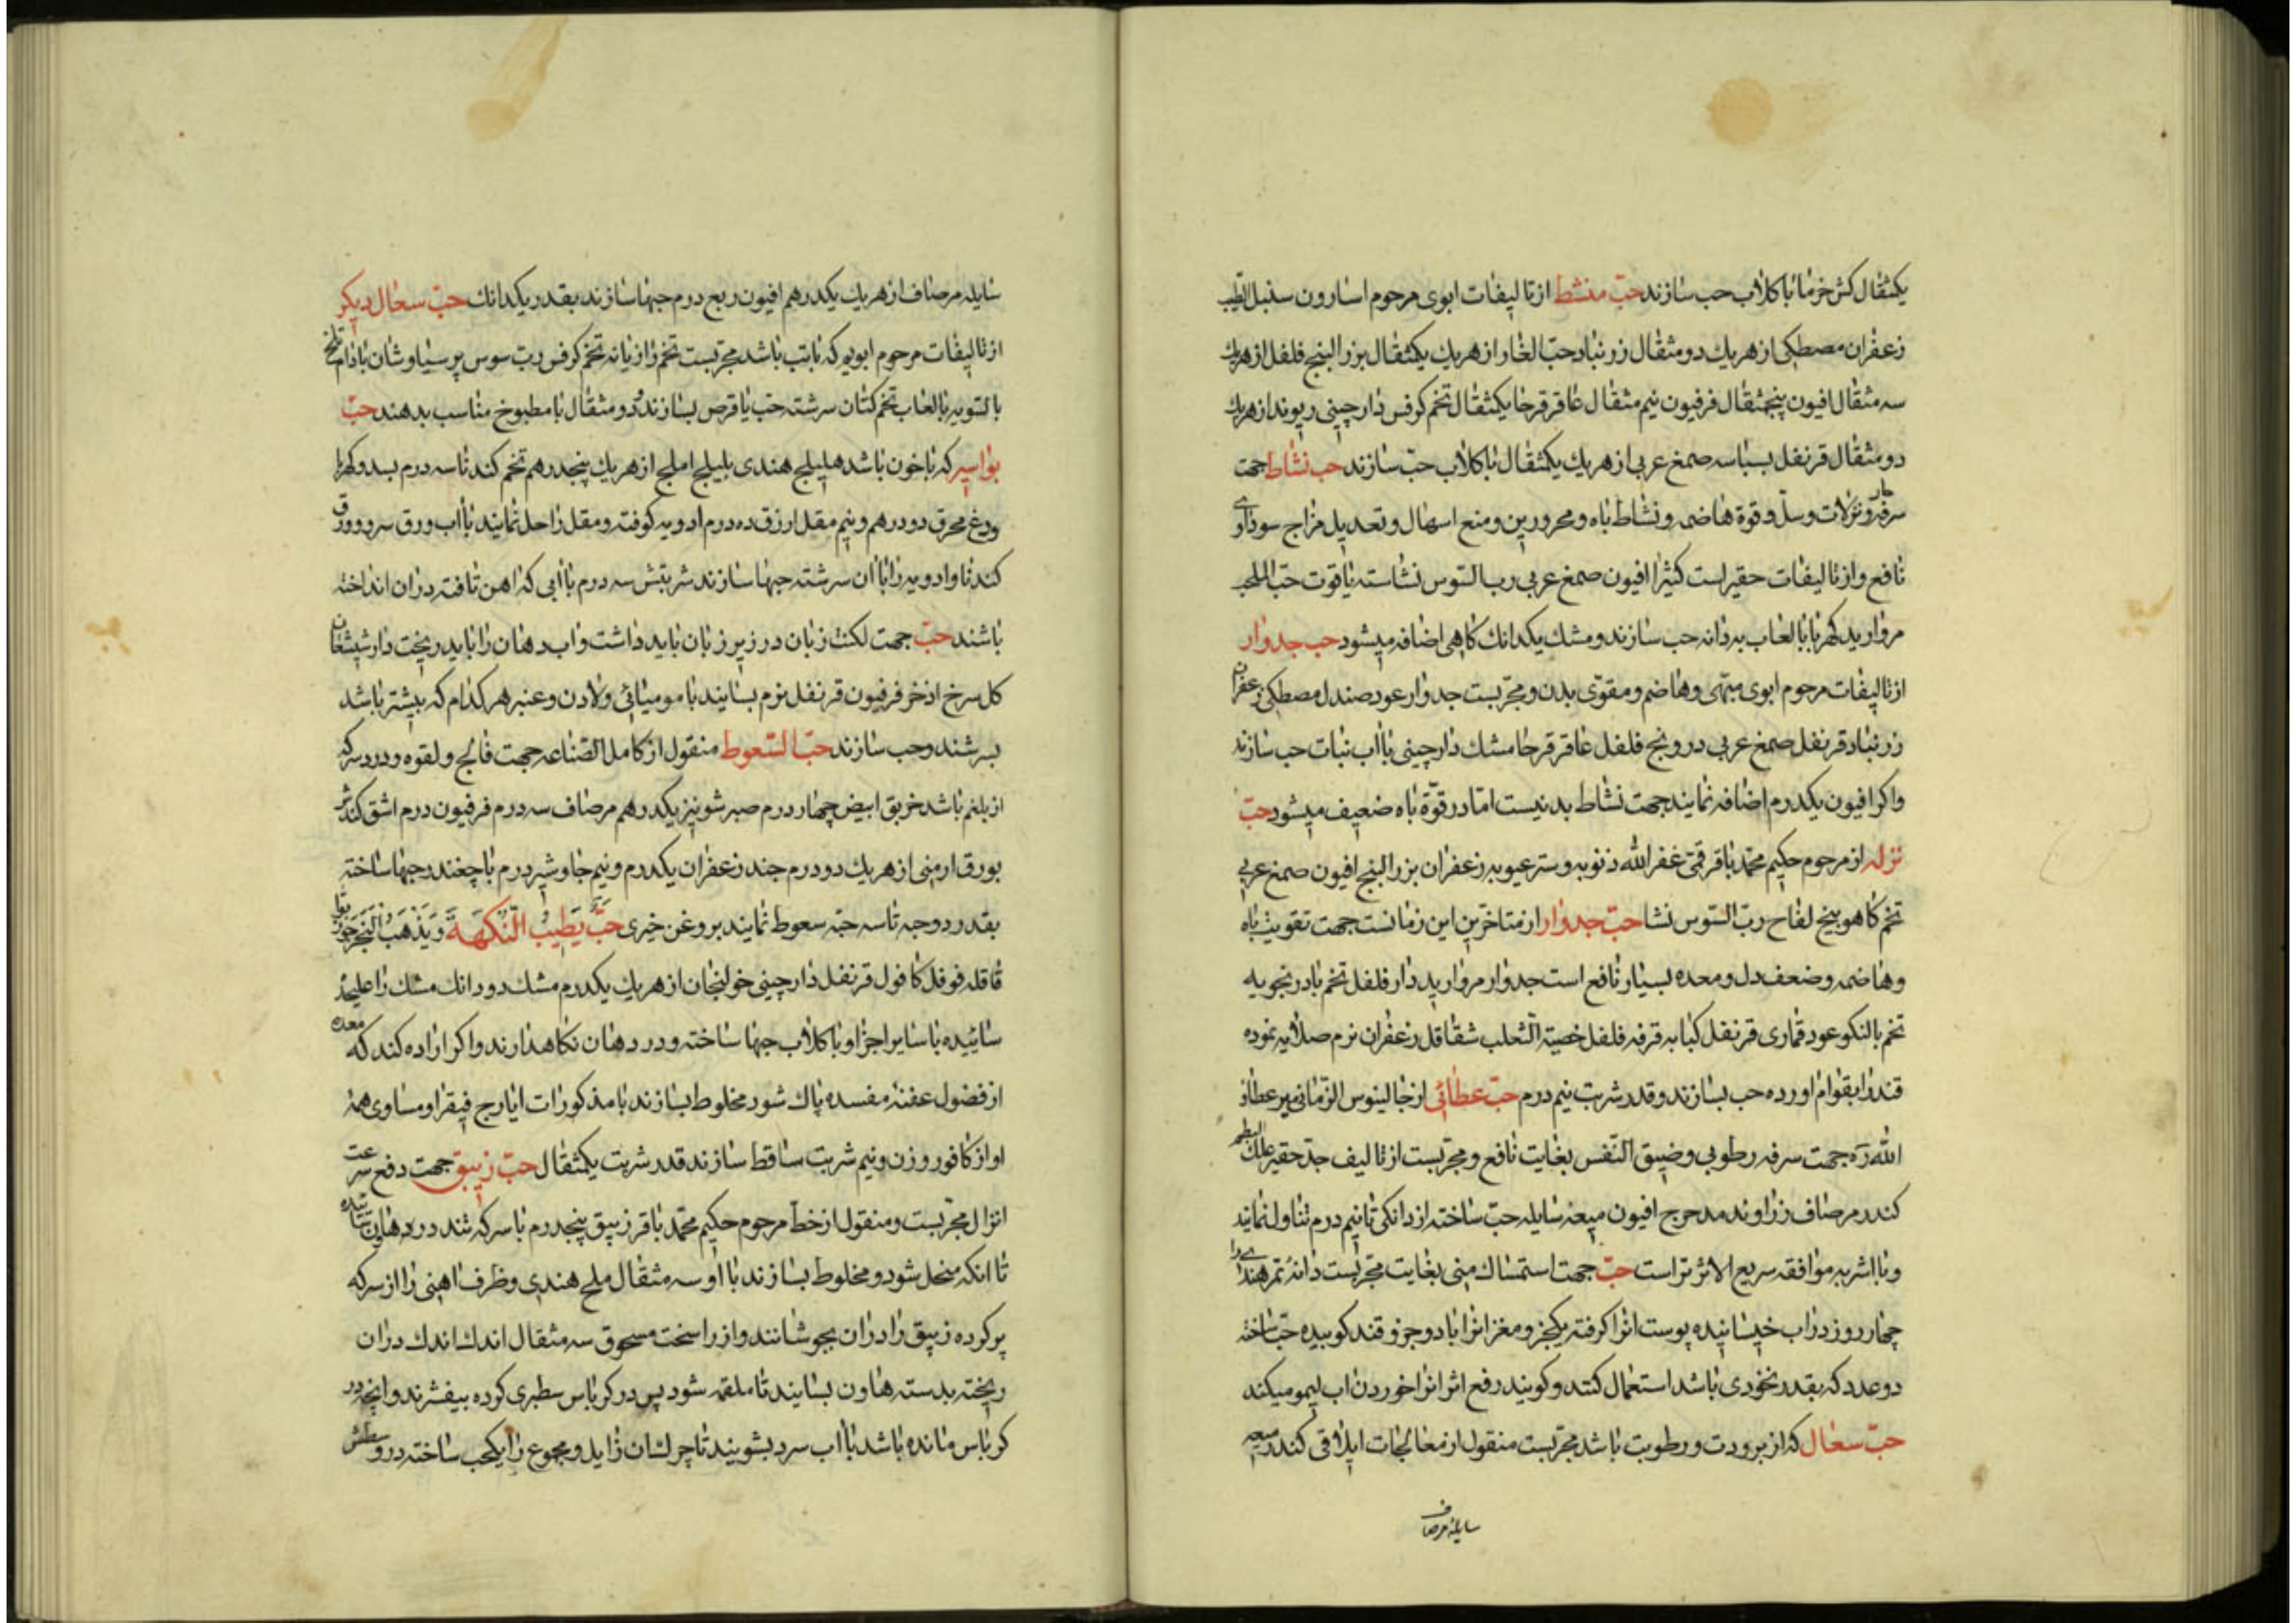 یکمثقال کش خرما با کلاب حب سازند حبّ منشط از تالیفات ابوی مرحوم اسارون سنبل الطیب
زعفران مصطکی از هریك دو مثقال زرنباد حبّ الغار از هریك یکمثقال بزر البنج فلفل از هریك
سه مثقال افیون پنجمثقال فرفیون نیم مثقال عاقرقرحا یکمثقال تخم کرفس دارچینی ریوند از هریك
دو مثقال قرنفل بسباسه صمغ عربی از هریك یکمثقال با کلاب حبّ سازند حب نشاط جهت
سرفه و نزلات وسلّ و قوة هاضمه و نشاط باه و محرورین و منع اسهال و تعدیل مزاج سوداوی
نافع و از تالیفات حقیر است کتیرا افیون صمغ عربی رب السّوس نشاسته یاقوت حبّ
مروارید کهربا با لعاب به دانه حب سازند و مشك یکدانك کاهی اضافه میشود حب جدوار
از تالیفات مرحوم ابوی مبهّی و هاضم و مقوّی بدن و مجرّبست جدوار عود صندل مصطکی زعفران
زرنباد قرنفل صمغ عربی درونج فلفل عاقرقرحا مشك دارچینی با آب نبات حب سازند
و اکر افیون یکدرم اضافه نمایند جهت نشاط بد نیست امّا در قوّة باه ضعیف میشود حبّ
نزله از مرحوم حکیم محمّد باقر قمّی غفر الله ذنوبه و ستر عیوبه زعفران بزر البنج افیون صمغ عربی
تخم کاهو بیخ لفاح ربّ السّوس نشا حبّ جدوار از متاخّرین این زمانست جهت تقویت باه
و هاضمه و ضعف دل و معده بسیار نافع است جدوار مروارید دار فلفل تخم بادرنجویه
تخم بالنکو عود قماری قرنفل کبابه قرفه فلفل خصیة الثّعلب شقاقل زعفران نرم صلایه نموده
قند را بقوام اورده حب بسازند و قدر شربت نیم درم حبّ عطائی از جالینوس الزّمانی میر عطاء
الله ره جهت سرفه رطوبی و ضیق النّفس بغایت نافع و مجرّبست از تالیف جدّ حقیر علك البطم
کندر مرصاف زراوند مدحرج افیون میعه سایله حبّ ساخته از دانکی تا نیم درم تناول نمایند
و با اشربه موافقه سریع الاثر تر است حبّ جهت استمساك منی بغایت مجرّبست دانه تمر هندی را
چهار روز در اب خیسانیده پوست انرا کرفته یکجزو مغز انرا با دو جزو قند کوبیده حبّ ساخته
دو عدد که بقدر نخودی باشد استعمال کنند و کویند رفع اثر انرا خوردن اب لیمو میکند
حبّ سعال که از برودت و رطوبت باشد مجرّبست منقول از معالجات ایلاقی کندر میعه
سایله مرصاف
سایله مرصاف از هریك یکدرهم افیون ربع درم حبها سازند بقدر یکدانك حبّ سعال دیکر
از تالیفات مرحوم ابوی که با تب باشد مجرّبست تخم رازیانه تخم کرفس رب سوس پرسیاوشان بادام تلخ
بالسّویه با لعاب تخم کتان سرشته حب یا قرص بسازند دو مثقال با مطبوخ مناسب بدهند حبّ
بواسیر که با خون باشد هلیلج هندی بلیلج املج از هریك پنجدرهم تخم کندنا سه درم بسد و کهربا
ودع محرق دو درهم و نیم مقل ارزق ده درم ادویه کوفته و مقل را حل نمایند با آب ورق سرو و ورق
کندنا و ادویه را با ان سرشته حبها سازند شربتش سه درم با ابی که اهن تافته دران انداخته
باشند حبّ جهت لکنت زبان در زیر زبان باید داشت و اب دهان را باید ریخت دارشیشعان
کل سرخ اذخر فرفیون قرنفل نرم بسایند با مومیائی و لادن و عنبر هر کدام که بیشتر باشد
بسرشند و حب سازند حبّ السّعوط منقول از کامل الصّناعه جهت فالج و لقوه و درد سر که
از بلغم باشد خربق ابیض چهار درم صبر شونیز یکدرهم مرصاف سه درم فرفیون درم اشق کندش
بورق ارمنی از هریك دو درم جند زعفران یکدرم و نیم جاوشیر درم با چغندر حبها ساخته
بقدر دو حبه تا سه حبّه سعوط نمایند بروغن خیری حَبٌّ یَطیبُ النّکهَةَ وَ یَذهَبُ البَخَر جوز بوا
قاقله فوفل کافور قرنفل دارچینی خولنجان از هریك یکدرم مشك دو دانك مشك را علیحده
سائیده با سایر اجزا و با کلاب حبها ساخته و در دهان نکاهدارند و اکر اراده کند که معده
از فضول عفنه مفسده پاك شود مخلوط بسازند با مذکورات ایارج فیقرا و مساوی همه
او از کافور وزن و نیم شربت ساقط سازند قدر شربت یکمثقال حبّ زیبق جهت دفع سرعت
انزال مجرّبست و منقول از خطّ مرحوم حکیم محمّد باقر زیبق پنجدرم با سرکه تند در هاون سائیده
تا انکه منحل شود و مخلوط بسازند با او سه مثقال ملح هندی و ظرف اهنی را از سرکه
پر کرده زیبق را دران بجوشانند و از راسخت مسحوق سه مثقال اندك اندك دران
ریخته بدسته هاون بسایند تا ملقمه شود پس در کرباس سطبری کرده بیفشرند و انچه در
کرباس مانده باشد با آب سرد بشویند تا چرکشان زایل و مجموع را یکحب ساخته در وسطش